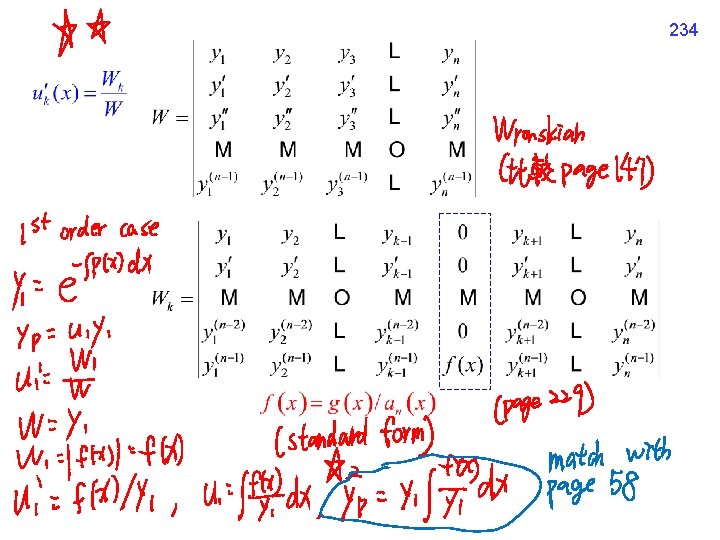 234
☆☆
u'_k(x) = W_k / W
W = | y_1 y_2 y_3 L y_n |
| y'_1 y'_2 y'_3 L y'_n |
| y''_1 y''_2 y''_3 L y''_n |
| M M M O M |
| y_1^{(n-1)} y_2^{(n-1)} y_3^{(n-1)} L y_n^{(n-1)} |
Wronskian
(比較 page 147)
1st order case
y_1 = e^{-∫p(x)dx}
y_p = u_1 y_1
u_1' = W_1 / W
W = y_1
W_1 = |f(x)| = f(x)
u_1' = f(x)/y_1 , u_1 = ∫ f(x)/y_1 dx
W_k = | y_1 y_2 L y_{k-1} 0 y_{k+1} L y_n |
| y'_1 y'_2 L y'_{k-1} 0 y'_{k+1} L y'_n |
| M M O M M M O M |
| y_1^{(n-2)} y_2^{(n-2)} L y_{k-1}^{(n-2)} 0 y_{k+1}^{(n-2)} L y_n^{(n-2)} |
| y_1^{(n-1)} y_2^{(n-1)} L y_{k-1}^{(n-1)} f(x) y_{k+1}^{(n-1)} L y_n^{(n-1)} |
f(x) = g(x)/a_n(x)
(page 229)
(standard form)
☆2 y_p = y_1 ∫ f(x)/y_1 dx
match with
page 58